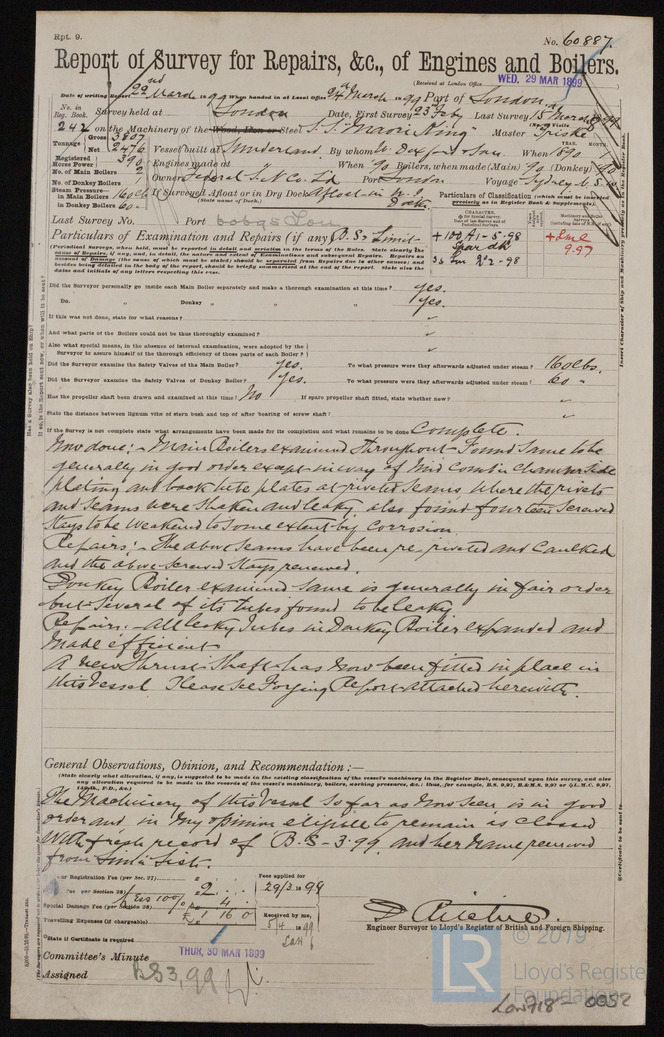 Rpt. 9.
No. 60887.
Report of Survey for Repairs, &c., of Engines and Boilers.
(Received at London Office WED. 29 MAR 1899
Date of writing Report 22nd March 1899 When handed in at Local Office 24th March 1899 Port of London
No. in Reg. Book. Survey held at London Date, First Survey 23rd Feb Last Survey 15 March 1899
247 on the Machinery of the Wood, Iron or Steel S.S. "Maori King" Master
Tonnage Gross 3807 Net 2476 Vessel built at Sunderland By whom W. Doxford & Son When 1890
Registered Horse Power 390 Engines made at When 90 Boilers, when made (Main) 90 (Donkey) 90
No. of Main Boilers 2 Owners Port London Voyage Sydney
No. of Donkey Boilers
Steam Pressure in Main Boilers 160 lb If Surveyed Afloat or in Dry Dock Afloat in Dock.
in Donkey Boilers 60
(State name of Dock.)
Particulars of Classification (which must be inserted precisely as in Register Book & Supplements).
Last Survey No. Port
Particulars of Examination and Repairs (if any) B.S. Limit
+ 100 A1 - 5 - 98
Spar dk
+ LMC 9.97
(Periodical Surveys, when held, must be reported in detail and seriatim in the terms of the Rules. State clearly the
Did the Surveyor personally go inside each Main Boiler separately and make a thorough examination at this time? Yes.
Do. " Donkey " " " Yes.
If this was not done, state for what reasons? "
And what parts of the Boilers could not be thus thoroughly examined? "
Also what special means, in the absence of internal examination, were adopted by the
Surveyor to assure himself of the thorough efficiency of those parts of each Boiler? "
Did the Surveyor examine the Safety Valves of the Main Boiler? Yes. To what pressure were they afterwards adjusted under steam? 160 lbs.
Did the Surveyor examine the Safety Valves of Donkey Boiler? Yes. To what pressure were they afterwards adjusted under steam? 60 "
Has the propeller shaft been drawn and examined at this time? No If spare propeller shaft fitted, state whether new? "
State the distance between lignum vitæ of stern bush and top of after bearing of screw shaft? "
If the Survey is not complete state what arrangements have been made for its completion and what remains to be done Complete.
Now done: - Main Boilers examined throughout. Found same to be
generally in good order except in way of Mid Combn Chamber side
plating and back tube plates at riveted seams, where the rivets
and seams were shaken and leaky. also found fourteen screwed
stays to be weakened to some extent by corrosion.
Repairs: - The above seams have been re riveted and Caulked
and the above screwed stays renewed.
Donkey Boiler examined same is generally in fair order
but several of its tubes found to be leaky
Repairs: - All leaky tubes in Donkey Boiler expanded and
made efficient
A new Thrust Shaft has now been fitted in place in
this vessel. Please see Forging Report attached herewith.
General Observations, Opinion, and Recommendation:—
(State clearly what alteration, if any, is suggested to be made in the existing classification of the vessel's machinery in the Register Book, consequent upon this survey, and also
any alteration required to be made in the records of the vessel's machinery, boilers, working pressures, &c.; thus, for example, B.S. 9,97, B.&M.S. 9,97 or L.M.C. 9,97,
140 lb., F.D., &c.)
The Machinery of this Vessel so far as now seen is in good
order and in my opinion eligible to remain as Classed
with fresh record of B.S - 3.99 and her name removed
from Limit List.
or Registration Fee (per Sec. 27)
Fee per Section 28) 2
Special Damage Fee (per Section 28) 4
£ 1 16 0
Travelling Expenses (if chargeable)
Fees applied for
29/3 1899
Received by me,
5/4 1899
Engineer Surveyor to Lloyd's Register of British and Foreign Shipping.
State if Certificate is required
Committee's Minute THUR. 30 MAR 1899
Assigned BS 3,99
© 2019
LR
Lloyd's Register
Foundation
Lon 718 - 0052